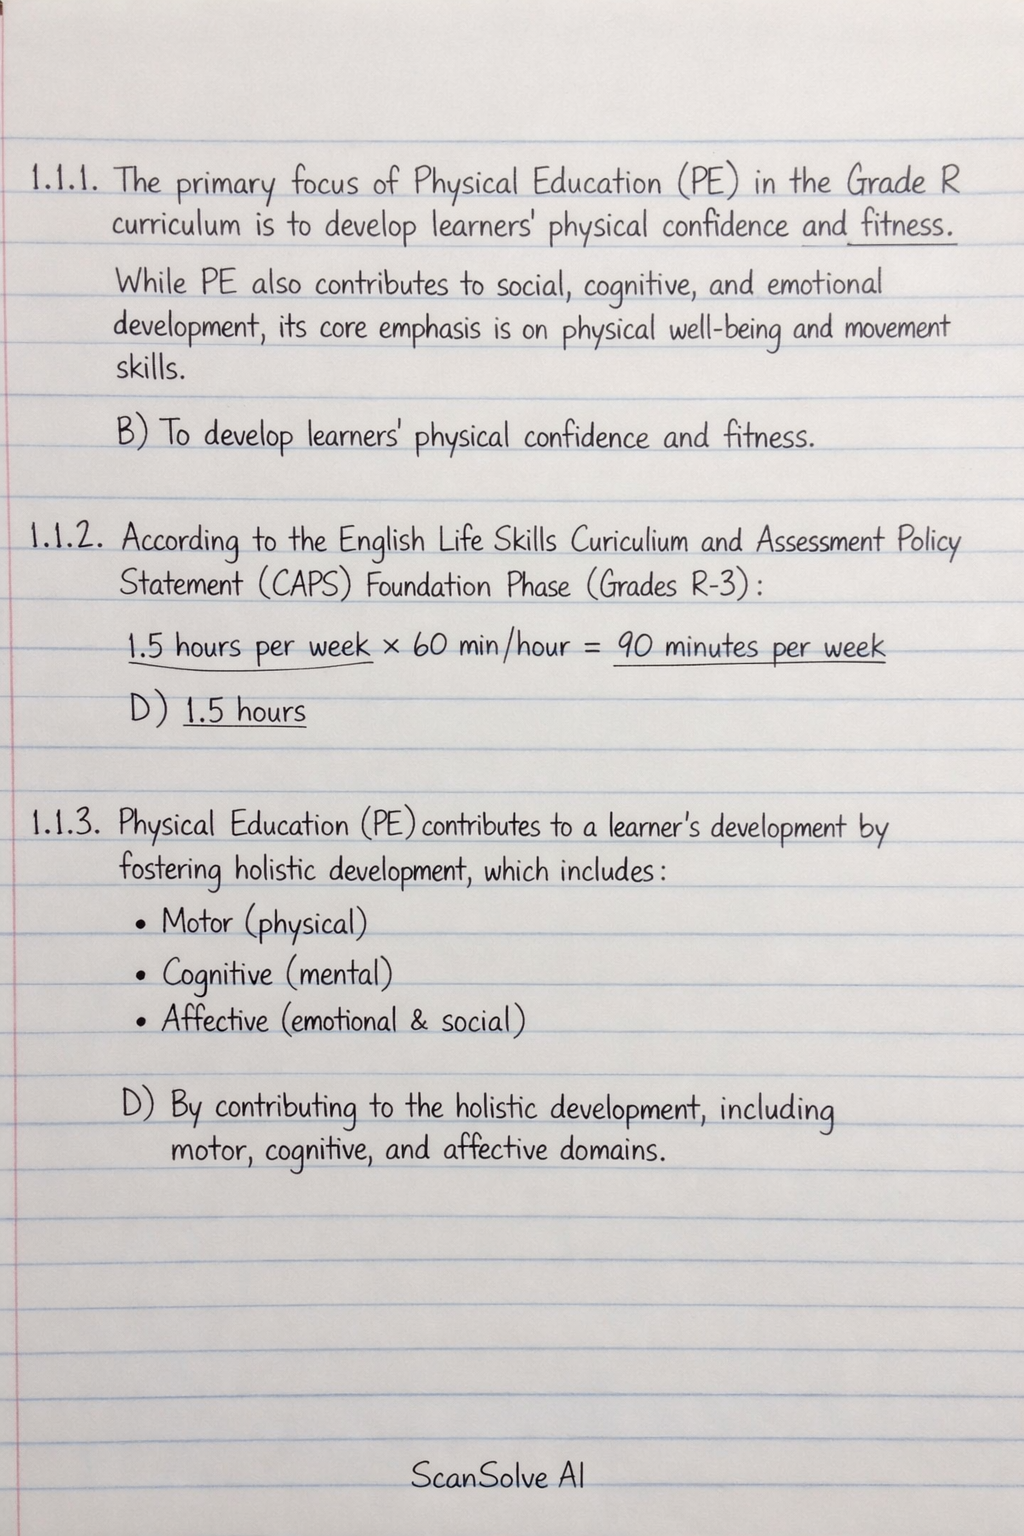 1.1.1. The primary focus of Physical Education (PE) in the Grade R
curriculum is to develop learners' physical confidence and fitness.
While PE also contributes to social, cognitive, and emotional
development, its core emphasis is on physical well-being and movement
skills.
B) To develop learners' physical confidence and fitness.
1.1.2. According to the English Life Skills Curiculium and Assessment Policy
Statement (CAPS) Foundation Phase (Grades R-3):
1.5 hours per week × 60 min/hour = 90 minutes per week
D) 1.5 hours
1.1.3. Physical Education (PE) contributes to a learner's development by
fostering holistic development, which includes:
• Motor (physical)
• Cognitive (mental)
• Affective (emotional & social)
D) By contributing to the holistic development, including
motor, cognitive, and affective domains.
ScanSolve AI